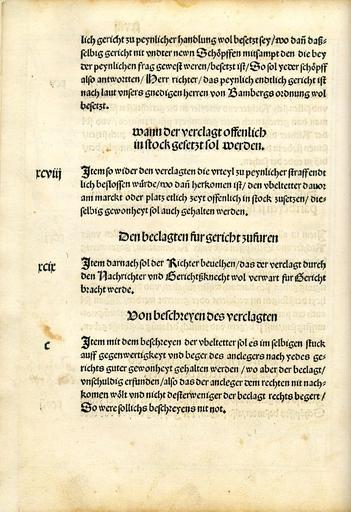 lich gericht zu peynlicher handlung wol besetzt sey/wo dañ daß-
selbig gericht nit vndter newn Schöpffen mitsampt den die bey
der peynlichen frag gewest weren/besetzt ist/So sol yeder schöpff
also antwortten/Herr richter/das peynlich endtlich gericht ist
nach laut vnsers gnedigen herren von Bambergs ordnung wol
besetzt.
wann der verclagt offenlich
in stock gesetzt sol werden.
xcviij Item so wider den verclagten die vrteyl zu peynlicher straff endt
lich beslossen würde/wo dañ herkomen ist/den vbeltetter dauor
am marckt oder platz etlich zeyt offenlich in stock zusetzen/die-
selbig gewonheyt sol auch gehalten werden.
Den beclagten fur gericht zufuren
xcix Item darnach sol der Richter beuelhen/das der verclagt durch
den Nachrichter vnd Gerichtßknecht wol verwart fur Gericht
bracht werde.
Von beschreyen des verclagten
c Item mit dem beschreyen der vbeltetter sol es im selbigen stuck
auff gegenwertigkeyt vnd beger des anclegers nach yedes ge-
richts guter gewonheyt gehalten werden/wo aber der beclagt/
vnschuldig erfunden/also das der ancleger dem rechten nit nach-
komen wölt vnd nicht desterweniger der beclagt rechts begert/
So were sollichs beschreyens nit not.